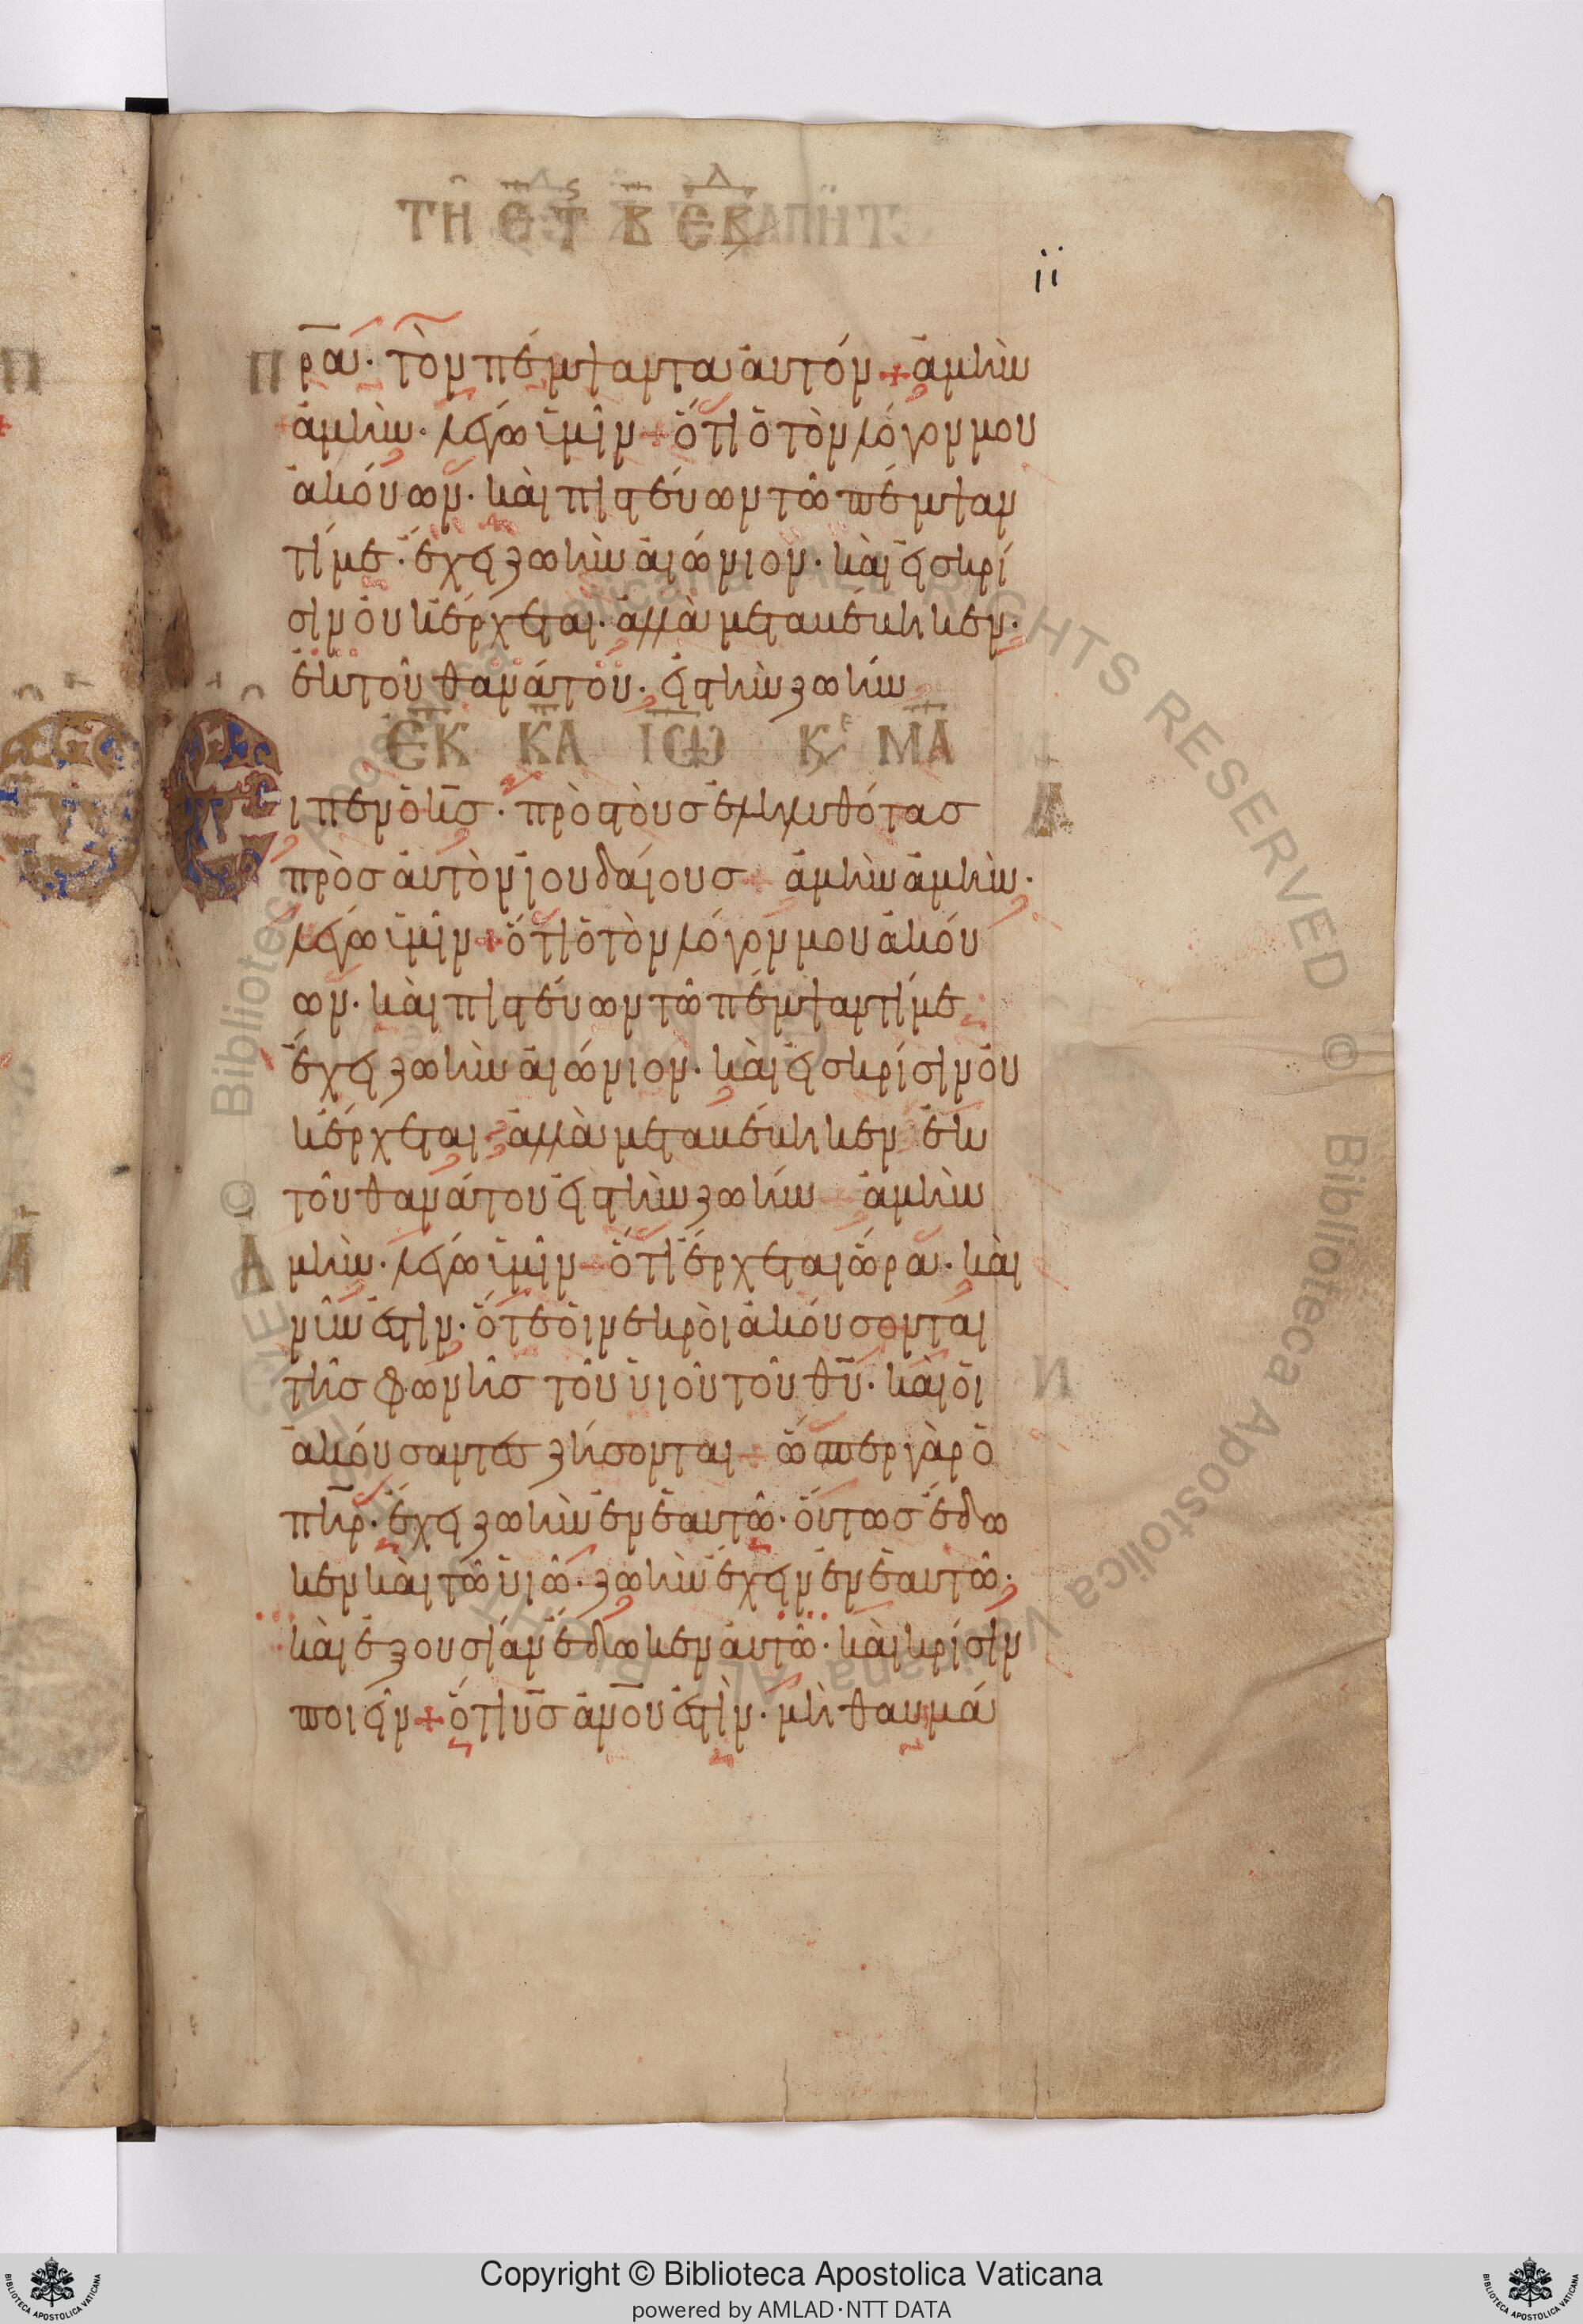 ΤΗ
ii
Πρ̅α̅. τὸν πέμψαντα αὐτόν + ἀμὴν
ἀμὴν. λέγω ὑμῖν + ὅτι ὁ τὸν λόγον μου
ἀκούων. καὶ πιστεύων τῶ πέμψαν
τί με. ἔχει ζωὴν αἰώνιον. καὶ εἰς κρί
σιν οὐκ ἔρχεται. ἀλλὰ μεταβέβηκεν.
ἐκ τοῦ θανάτου. εἰς τὴν ζωήν
ΕΚ ΚΑ ΙΩ ΚΕ ΜΑ
Εἶπεν ὁ κ̅ς̅. πρὸς τοὺς ἐληλυθότας
πρὸς αὐτὸν ἰουδαίους + ἀμὴν ἀμὴν.
λέγω ὑμῖν + ὅτι ὁ τὸν λόγον μου ἀκού
ων. καὶ πιστεύων τῶ πέμψαντί με
ἔχει ζωὴν αἰώνιον. καὶ εἰς κρίσιν οὐ
κ ἔρχεται. ἀλλὰ μεταβέβηκεν ἐκ
τοῦ θανάτου εἰς τὴν ζωήν + ἀμὴν
Ἀμὴν. λέγω ὑμῖν + ὅτι ἔρχεται ὥρα. καὶ
νῦν ἐστιν. ὅτε οἱ νεκροὶ ἀκούσονται
τῆς φωνῆς τοῦ υἱοῦ τοῦ θ̅υ̅. καὶ οἱ
ἀκούσαντες ζήσονται + ὥσπερ γὰρ ὁ
π̅η̅ρ̅. ἔχει ζωὴν ἐν ἑαυτῶ. οὕτως ἔδω
κεν καὶ τῶ υἱῶ. ζωὴν ἔχειν ἐν ἑαυτῶ.
καὶ ἐξουσίαν ἔδωκεν αὐτῶ. καὶ κρίσιν
ποιεῖν + ὅτι υ̅ς̅ α̅ν̅ο̅υ̅ ἐστὶν. μὴ θαυμά
Copyright © Biblioteca Apostolica Vaticana
powered by AMLAD·NTT DATA